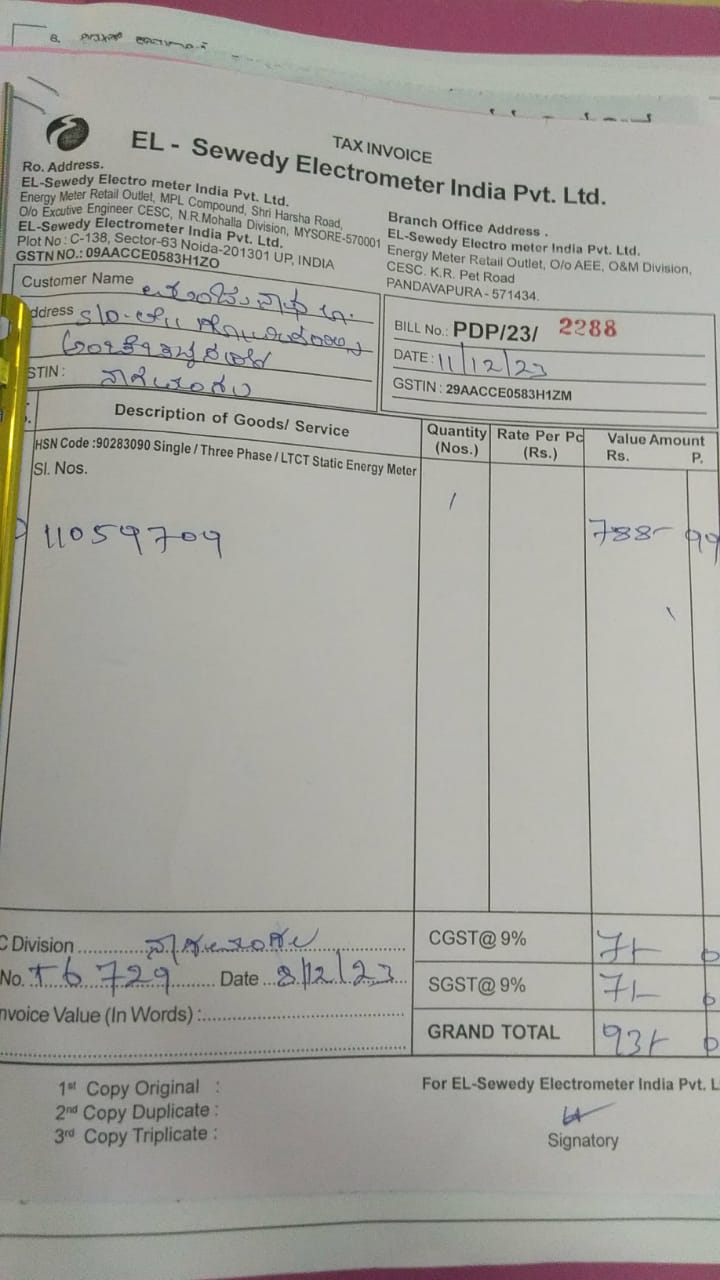 TAX INVOICE
EL - Sewedy Electrometer India Pvt. Ltd.
Ro. Address.
EL-Sewedy Electro meter India Pvt. Ltd.
Energy Meter Retail Outlet, MPL Compound, Shri Harsha Road,
O/o Excutive Engineer CESC, N.R.Mohalla Division, MYSORE-570001
EL-Sewedy Electrometer India Pvt. Ltd.
Plot No : C-138, Sector-63 Noida-201301 UP, INDIA
GSTN NO.: 09AACCE0583H1ZO
Branch Office Address .
EL-Sewedy Electro meter India Pvt. Ltd.
Energy Meter Retail Outlet, O/o AEE, O&M Division,
CESC. K.R. Pet Road
PANDAVAPURA - 571434.
Customer Name
ddress
STIN : ನಾಗಮಂಗಲ
BILL No.: PDP/23/ 2288
DATE : 11/12/23
GSTIN : 29AACCE0583H1ZM
Description of Goods/ Service
Quantity (Nos.)
Rate Per Pc (Rs.)
Value Amount
Rs. P.
HSN Code :90283090 Single / Three Phase / LTCT Static Energy Meter
Sl. Nos.
11059709 1 788- 99
C Division ნಾಗಮಂಗಲ
No. Date 8/12/23
nvoice Value (In Words) :
CGST@ 9% 71- 0
SGST@ 9% 71- 0
GRAND TOTAL 931- 0
1st Copy Original :
2nd Copy Duplicate :
3rd Copy Triplicate :
For EL-Sewedy Electrometer India Pvt. L
Signatory